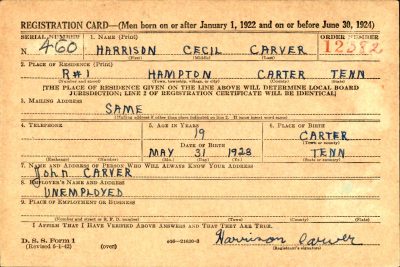 REGISTRATION CARD—(Men born on or after January 1, 1922 and on or before June 30, 1924)
SERIAL NUMBER 1. NAME (Print) ORDER NUMBER
N 460 HARRISON CECIL CARVER 12382
(First) (Middle) (Last)
2. PLACE OF RESIDENCE (Print)
R#1 HAMPTON CARTER TENN
(Number and street) (Town, township, village, or city) (County) (State)
[THE PLACE OF RESIDENCE GIVEN ON THE LINE ABOVE WILL DETERMINE LOCAL BOARD
JURISDICTION; LINE 2 OF REGISTRATION CERTIFICATE WILL BE IDENTICAL]
3. MAILING ADDRESS
SAME
[Mailing address if other than place indicated on line 2. If same insert word same]
4. TELEPHONE 5. AGE IN YEARS 6. PLACE OF BIRTH
19 CARTER
DATE OF BIRTH (Town or county)
MAY 31 1923 TENN
(Exchange) (Number) (Mo.) (Day) (Yr.) (State or country)
7. NAME AND ADDRESS OF PERSON WHO WILL ALWAYS KNOW YOUR ADDRESS
John CARVER
8. EMPLOYER'S NAME AND ADDRESS
UNEMPLOYED
9. PLACE OF EMPLOYMENT OR BUSINESS
(Number and street or R. F. D. number) (Town) (County) (State)
I AFFIRM THAT I HAVE VERIFIED ABOVE ANSWERS AND THAT THEY ARE TRUE.
D. S. S. Form 1
(Revised 6-1-42) (over) Harrison Carver
(Registrant's signature)